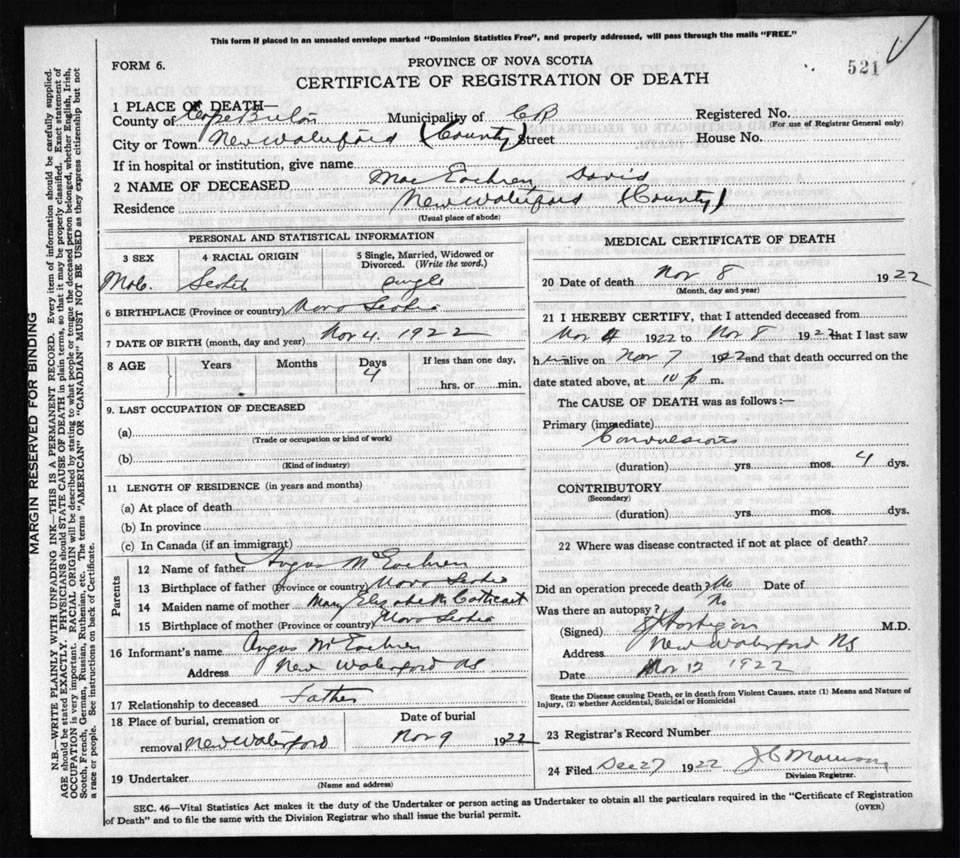 This form if placed in an unsealed envelope marked "Dominion Statistics Free", and properly addressed, will pass through the mails "FREE."
FORM 6.
PROVINCE OF NOVA SCOTIA
521
CERTIFICATE OF REGISTRATION OF DEATH
1 PLACE OF DEATH—
County of Cape Breton Municipality of CB Registered No.
(For use of Registrar General only)
City or Town New Waterford (County) Street House No.
If in hospital or institution, give name
2 NAME OF DECEASED MacEachren David
Residence New Waterford (County)
(Usual place of abode)
PERSONAL AND STATISTICAL INFORMATION
3 SEX 4 RACIAL ORIGIN 5 Single, Married, Widowed or Divorced. (Write the word.)
Scotch Single
6 BIRTHPLACE (Province or country) Nova Scotia
7 DATE OF BIRTH (month, day and year) Nov 4. 1922
8 AGE Years Months Days If less than one day,
4 hrs. or min.
9. LAST OCCUPATION OF DECEASED
(a)
(Trade or occupation or kind of work)
(b)
(Kind of industry)
11 LENGTH OF RESIDENCE (in years and months)
(a) At place of death
(b) In province
(c) In Canada (if an immigrant)
Parents
12 Name of father Angus McEachren
13 Birthplace of father (Province or country) Nova Scotia
14 Maiden name of mother Mary Elizabeth Cathcart
15 Birthplace of mother (Province or country) Nova Scotia
16 Informant's name Angus McEachren
Address New Waterford NS
17 Relationship to deceased Father
18 Place of burial, cremation or Date of burial
removal New Waterford Nov 9 1922
19 Undertaker
(Name and address)
MEDICAL CERTIFICATE OF DEATH
20 Date of death Nov 8 1922
(Month, day and year)
21 I HEREBY CERTIFY, that I attended deceased from
Nov 4 1922 to Nov 8 1922 that I last saw
h alive on Nov 7 1922 and that death occurred on the
date stated above, at 10 p m.
The CAUSE OF DEATH was as follows:—
Primary (immediate)
Convulsions
(duration) yrs. mos. 4 dys.
CONTRIBUTORY
(Secondary)
(duration) yrs. mos. dys.
22 Where was disease contracted if not at place of death?
Did an operation precede death? No Date of
Was there an autopsy? No
(Signed) M.D.
Address New Waterford NS
Date Nov 12 1922
State the Disease causing Death, or in death from Violent Causes, state (1) Means and Nature of
Injury, (2) whether Accidental, Suicidal or Homicidal
23 Registrar's Record Number
24 Filed Dec 27 1922 J C Morrison
Division Registrar.
SEC. 46—Vital Statistics Act makes it the duty of the Undertaker or person acting as Undertaker to obtain all the particulars required in the "Certificate of Registration
of Death" and to file the same with the Division Registrar who shall issue the burial permit.
(OVER)
MARGIN RESERVED FOR BINDING
N.B.—WRITE PLAINLY WITH UNFADING INK—THIS IS A PERMANENT RECORD. Every item of information should be carefully supplied.
AGE should be stated EXACTLY. PHYSICIANS should STATE CAUSE OF DEATH in plain terms, so that it may be properly classified. Exact statement of
OCCUPATION is very important. RACIAL ORIGIN will be described by stating to what people or tongue the deceased person belonged, whether English, Irish,
Scotch, French, German, Russian, Ruthenian, etc. The terms "AMERICAN" OR "CANADIAN" MUST NOT BE USED as they express citizenship but not
a race or people. See instructions on back of Certificate.